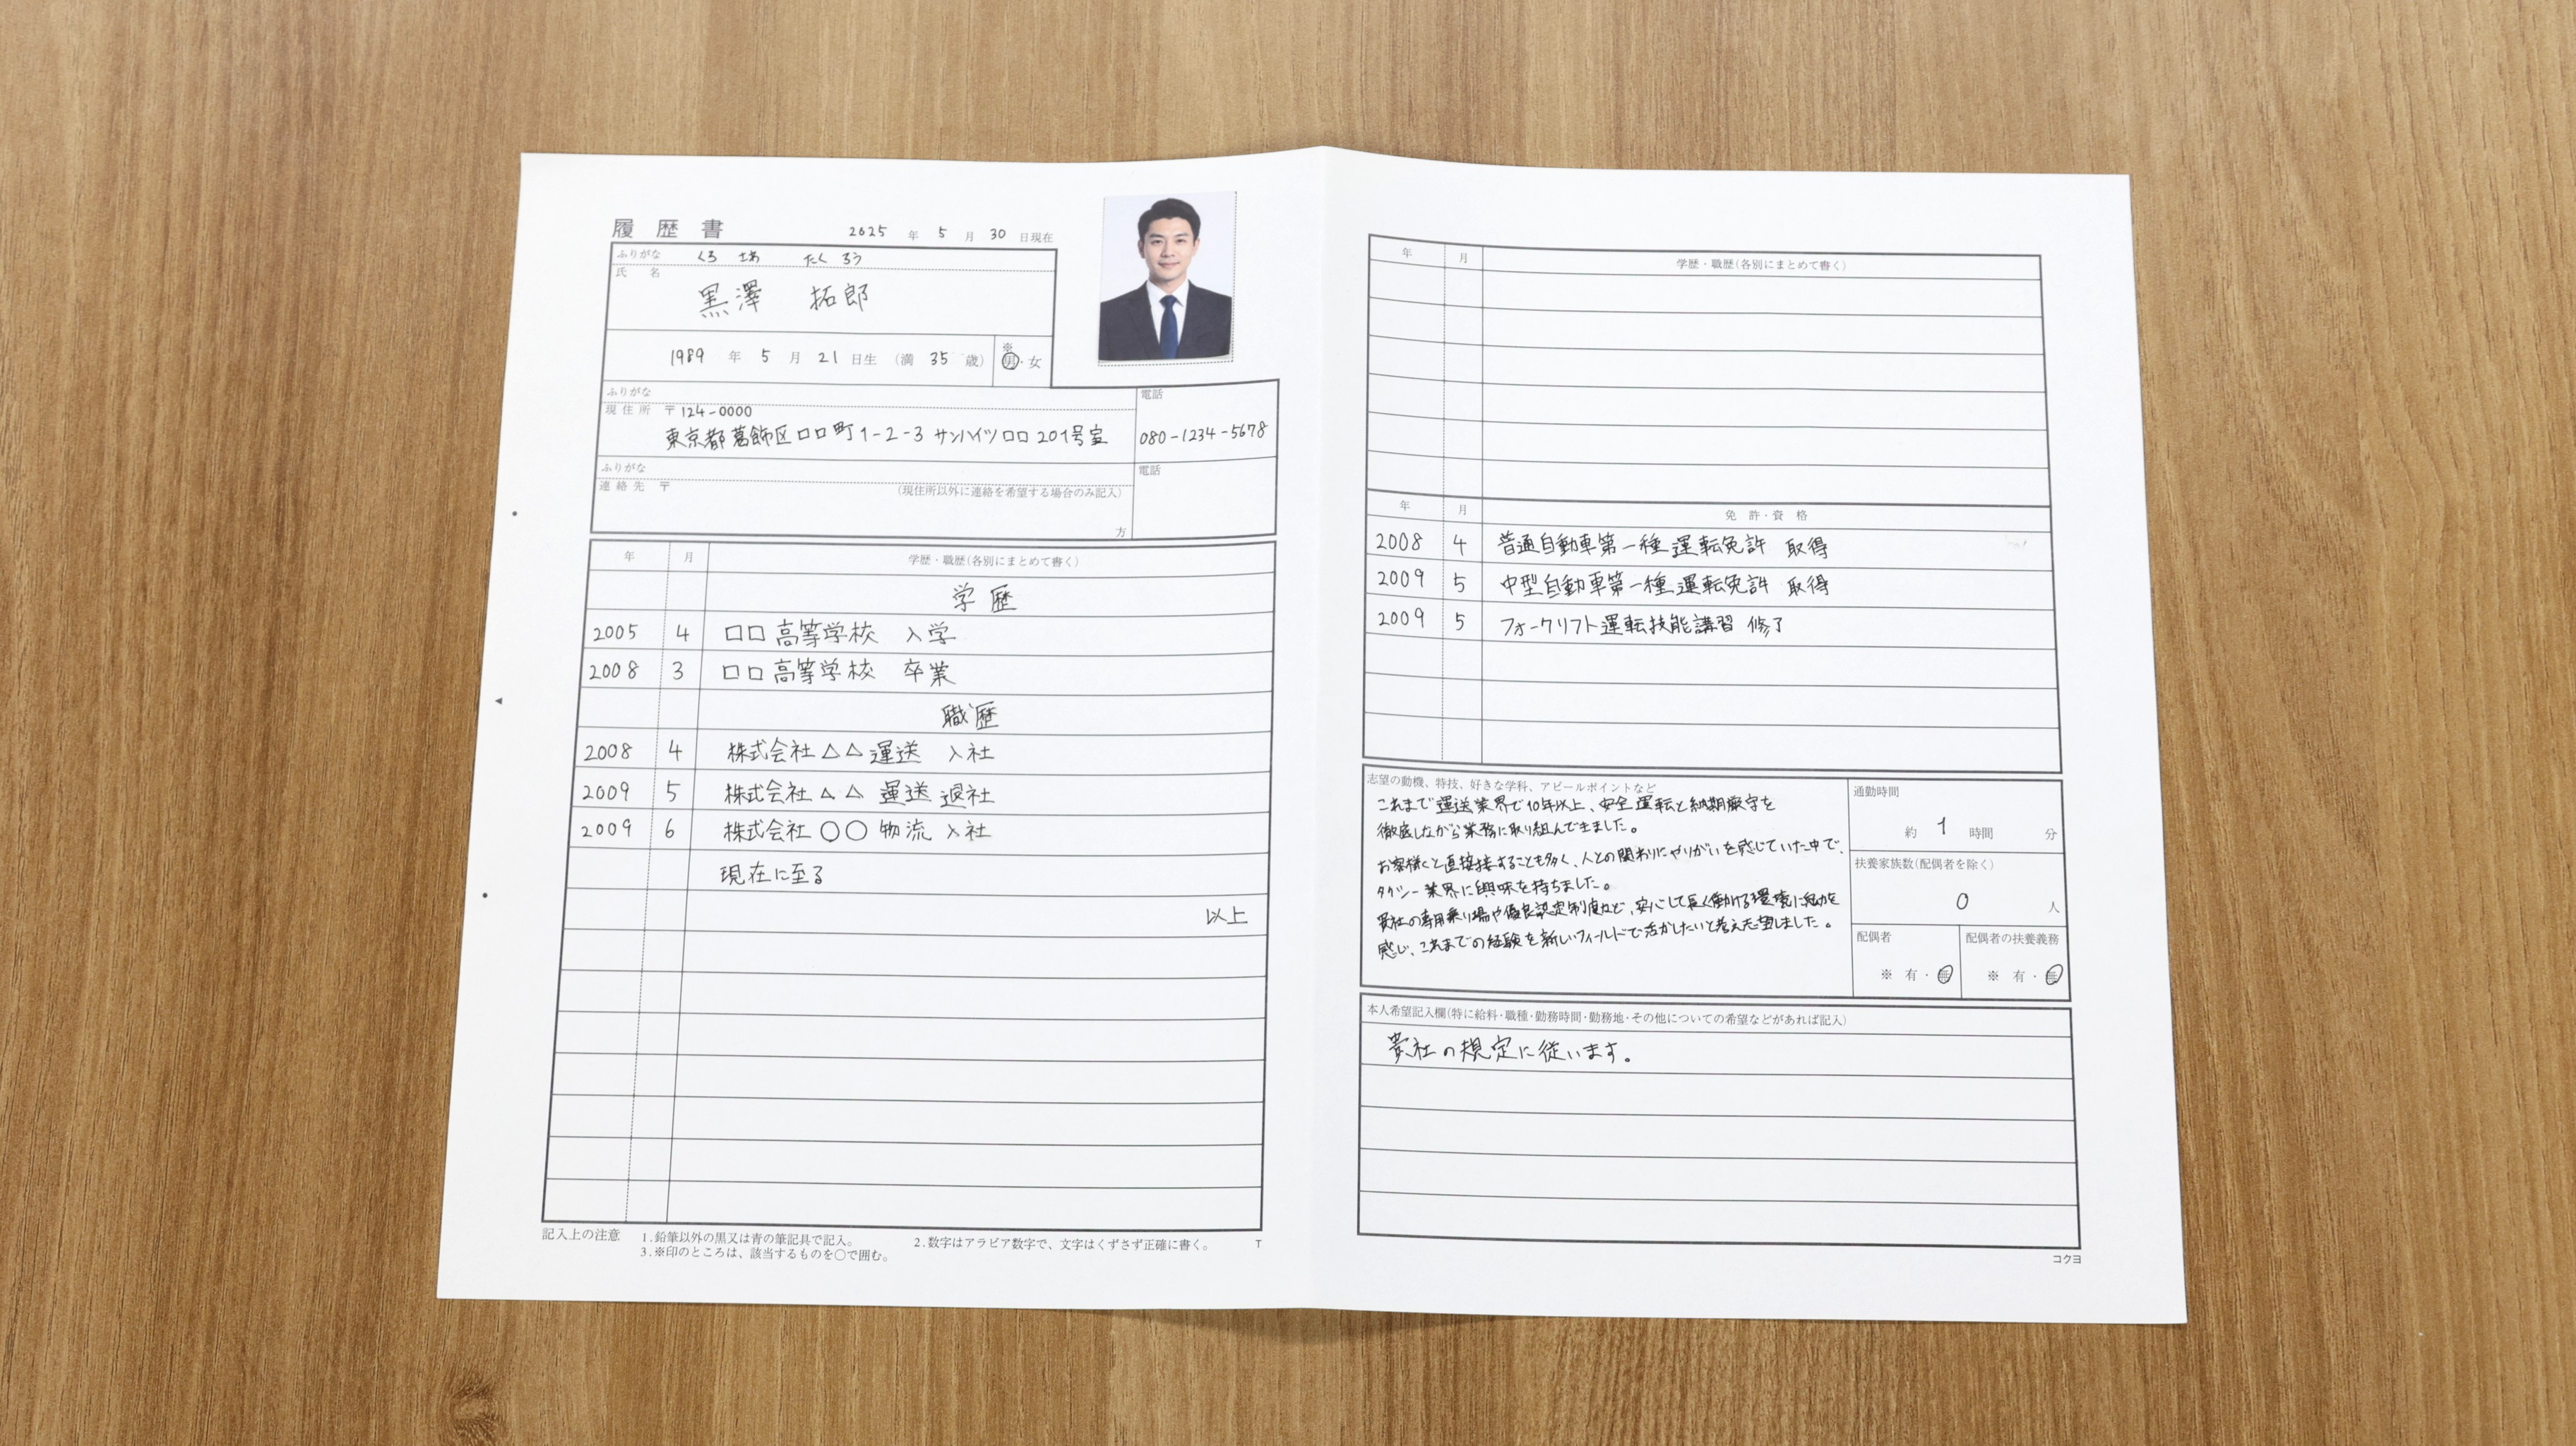 履歴書 2025 年 5 月 30 日現在
ふりがな くろ さわ たく ろう
氏 名
黒澤 拓郎
1989 年 5 月 21 日生 (満 35 歳)
※ 男・女
ふりがな
電話
現住所 〒 124-0000
東京都葛飾区□□町1-2-3 サンハイツ□□ 201号室
080-1234-5678
ふりがな
電話
連絡先 〒 (現住所以外に連絡を希望する場合のみ記入)
方
年 月 学歴・職歴(各別にまとめて書く)
学歴
2005 4 □□高等学校 入学
2008 3 □□高等学校 卒業
職歴
2008 4 株式会社△△運送 入社
2009 5 株式会社△△運送 退社
2009 6 株式会社○○物流 入社
現在に至る
以上
記入上の注意 1.鉛筆以外の黒又は青の筆記具で記入。 2.数字はアラビア数字で、文字はくずさず正確に書く。 T
3.※印のところは、該当するものを○で囲む。
年 月 学歴・職歴(各別にまとめて書く)
年 月 免許・資格
2008 4 普通自動車第一種運転免許 取得
2009 5 中型自動車第一種運転免許 取得
2009 5 フォークリフト運転技能講習 修了
志望の動機、特技、好きな学科、アピールポイントなど
これまで運送業界で10年以上、安全運転と納期厳守を
徹底しながら業務に取り組んできました。
お客様と直接接することも多く、人との関わりにやりがいを感じていた中で、
タクシー業界に興味を持ちました。
貴社の専用乗り場や優良認定制度など、安心して長く働ける環境に魅力を
感じ、これまでの経験を新しいフィールドで活かしたいと考え志望しました。
通勤時間
約 1 時間 分
扶養家族数(配偶者を除く)
0 人
配偶者
※ 有・無
配偶者の扶養義務
※ 有・無
本人希望記入欄(特に給料・職種・勤務時間・勤務地・その他についての希望などがあれば記入)
貴社の規定に従います。
コクヨ